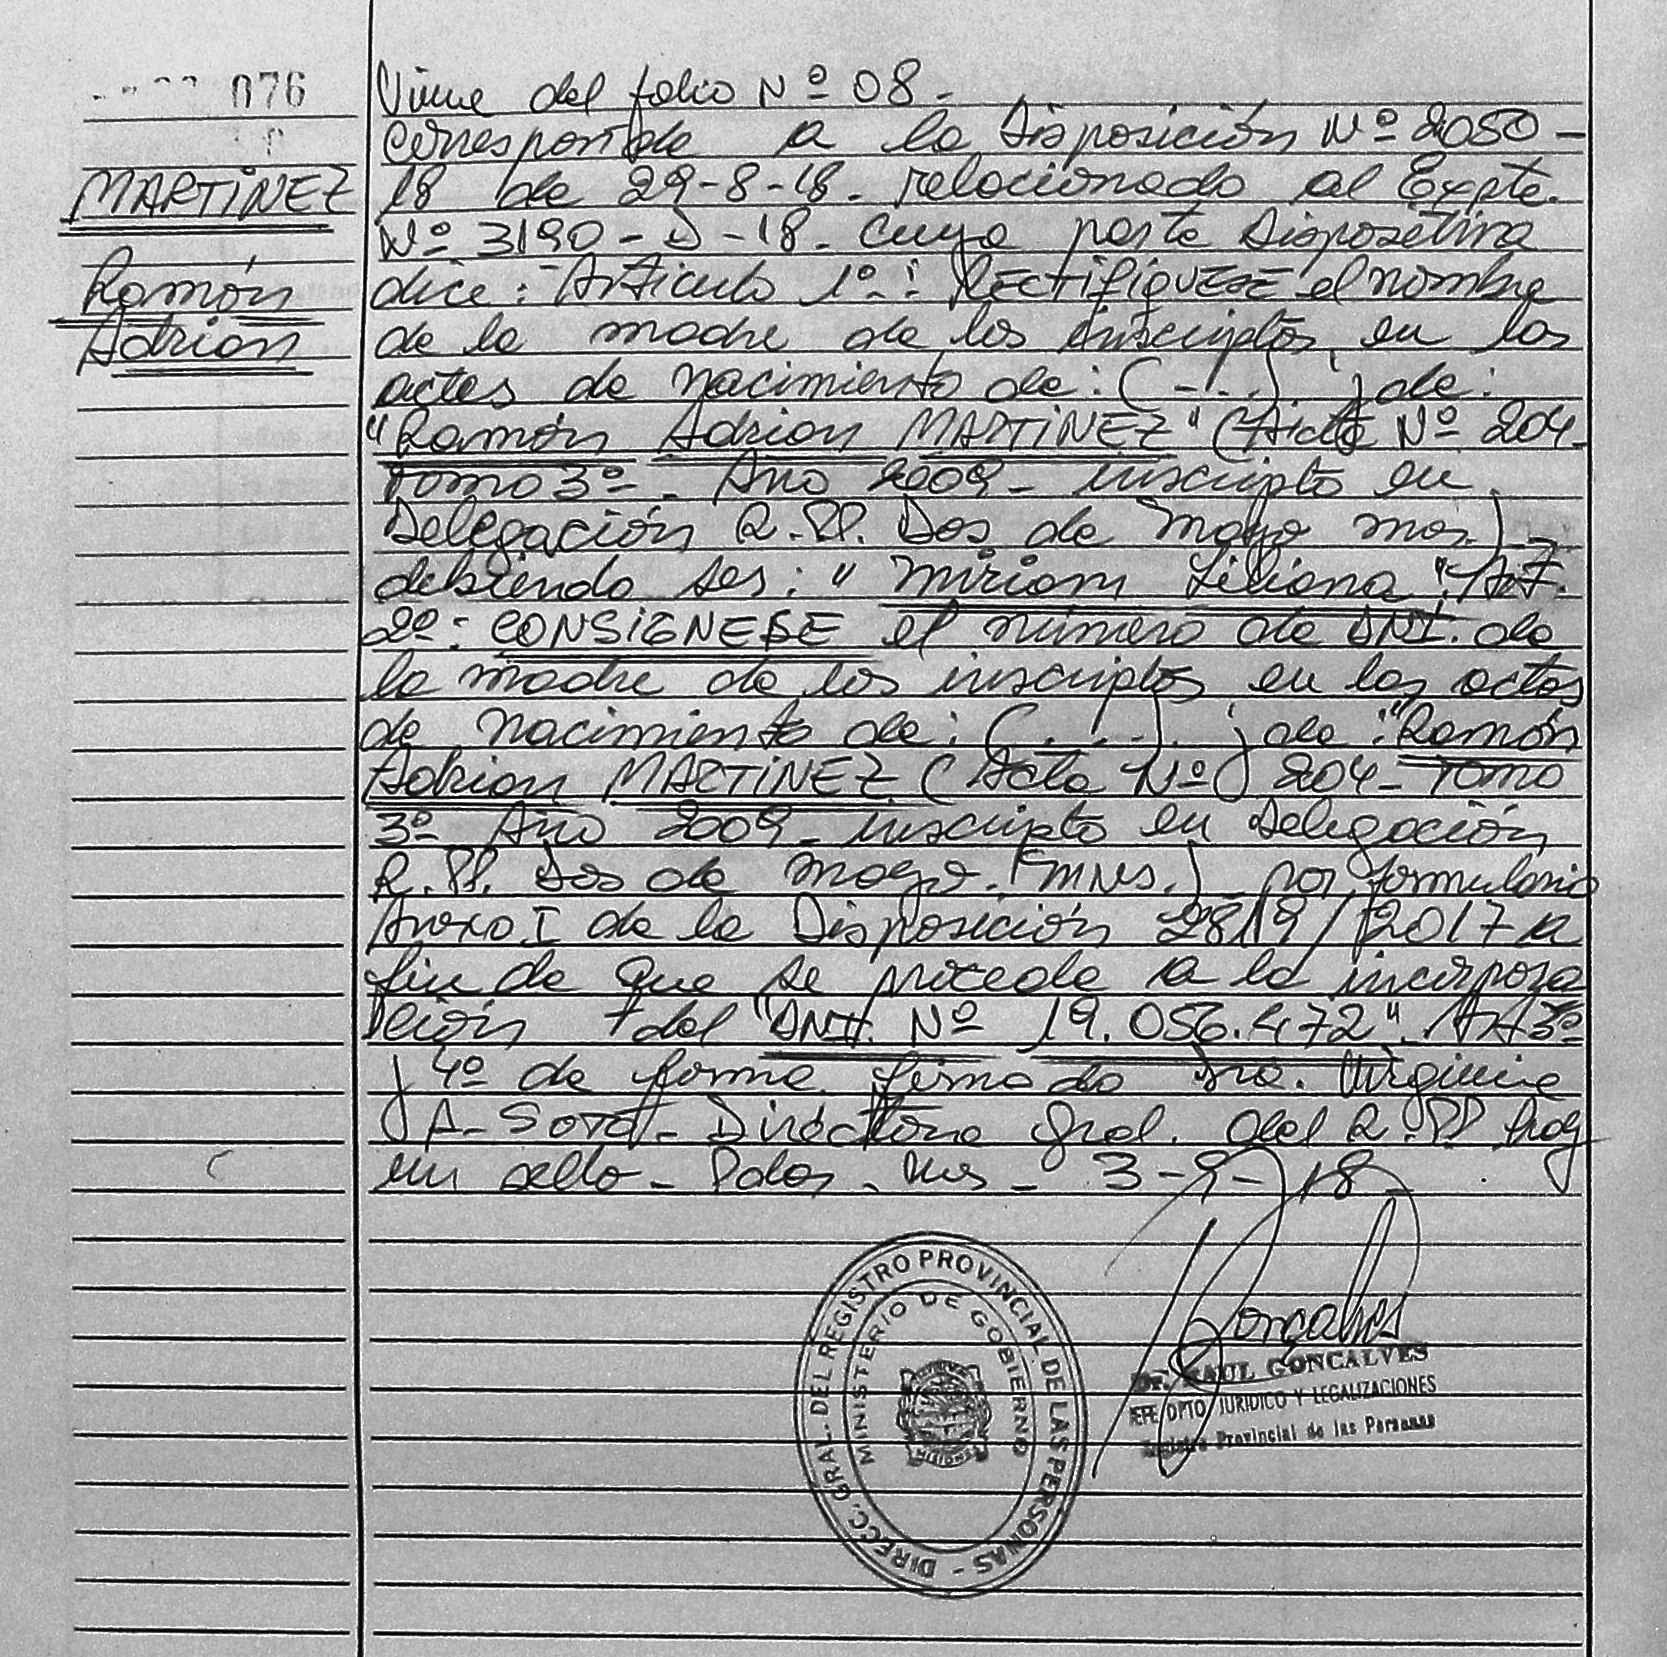 076
MARTINEZ
Ramón
Adrian
Viene del folio Nº 08-
corresponde a la Disposición Nº 2050-
18 de 29-8-18. relacionado al Expte.
Nº 3190-D-18. cuya parte Dispositiva
dice: Articulo 1º: RECTIFIQUESE el nombre
de la madre de los inscriptos en las
actas de nacimiento de: (-...) y de:
"Ramón Adrian MARTINEZ" (Acta Nº 204-
Tomo 3º- Año 2009- inscripto en
Delegación R.PP. Dos de Mayo mns.)
debiendo ser: "Miriam Liliana". Art.
2º: CONSIGNESE el número de DNI. de
la madre de los inscriptos en las actas
de nacimiento de: (....) y de: "Ramón
Adrian MARTINEZ (Acta Nº 204- Tomo
3º- Año 2009- inscripto en Delegación
R.PP. Dos de Mayo. (MNS.) por formulario
Anexo I de la Disposición 2819/2017 a
fin de que se proceda a la incorpora
ción del "DNI. Nº 19.056.472". Art 3º
y 4º de forma firmado Dra. Virginia
A- Soto- Directora Gral. del R.PP. hay
un sello- Pdas. Mns- 3-9-18-
DIRECC. GRAL. DEL REGISTRO PROVINCIAL DE LAS PERSONAS -
MINISTERIO DE GOBIERNO
Goncalves
Dr. RAUL GONCALVES
JEFE DPTO JURIDICO Y LEGALIZACIONES
Registro Provincial de las Personas